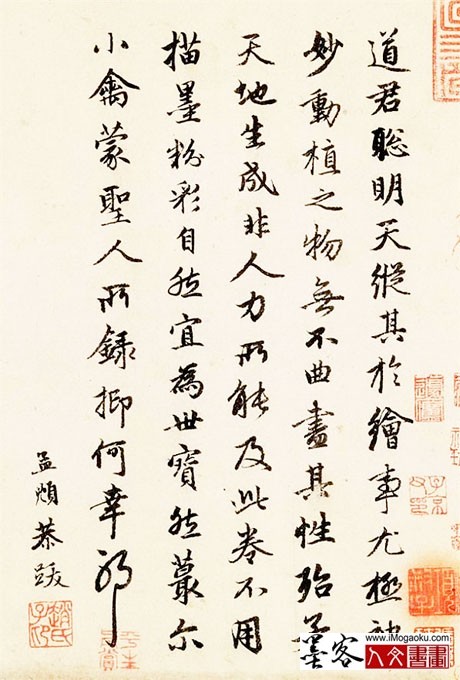 道君聰明天縱其於繪事尤極神
妙動植之物無不曲盡其性殆若
天地生成非人力所能及此卷不用
描墨粉彩自然宜為世寶然蕞尔
小禽蒙聖人所録抑何幸耶
孟頫恭跋
趙氏子昂
www.iMogaoku.com
墨客
人文書画